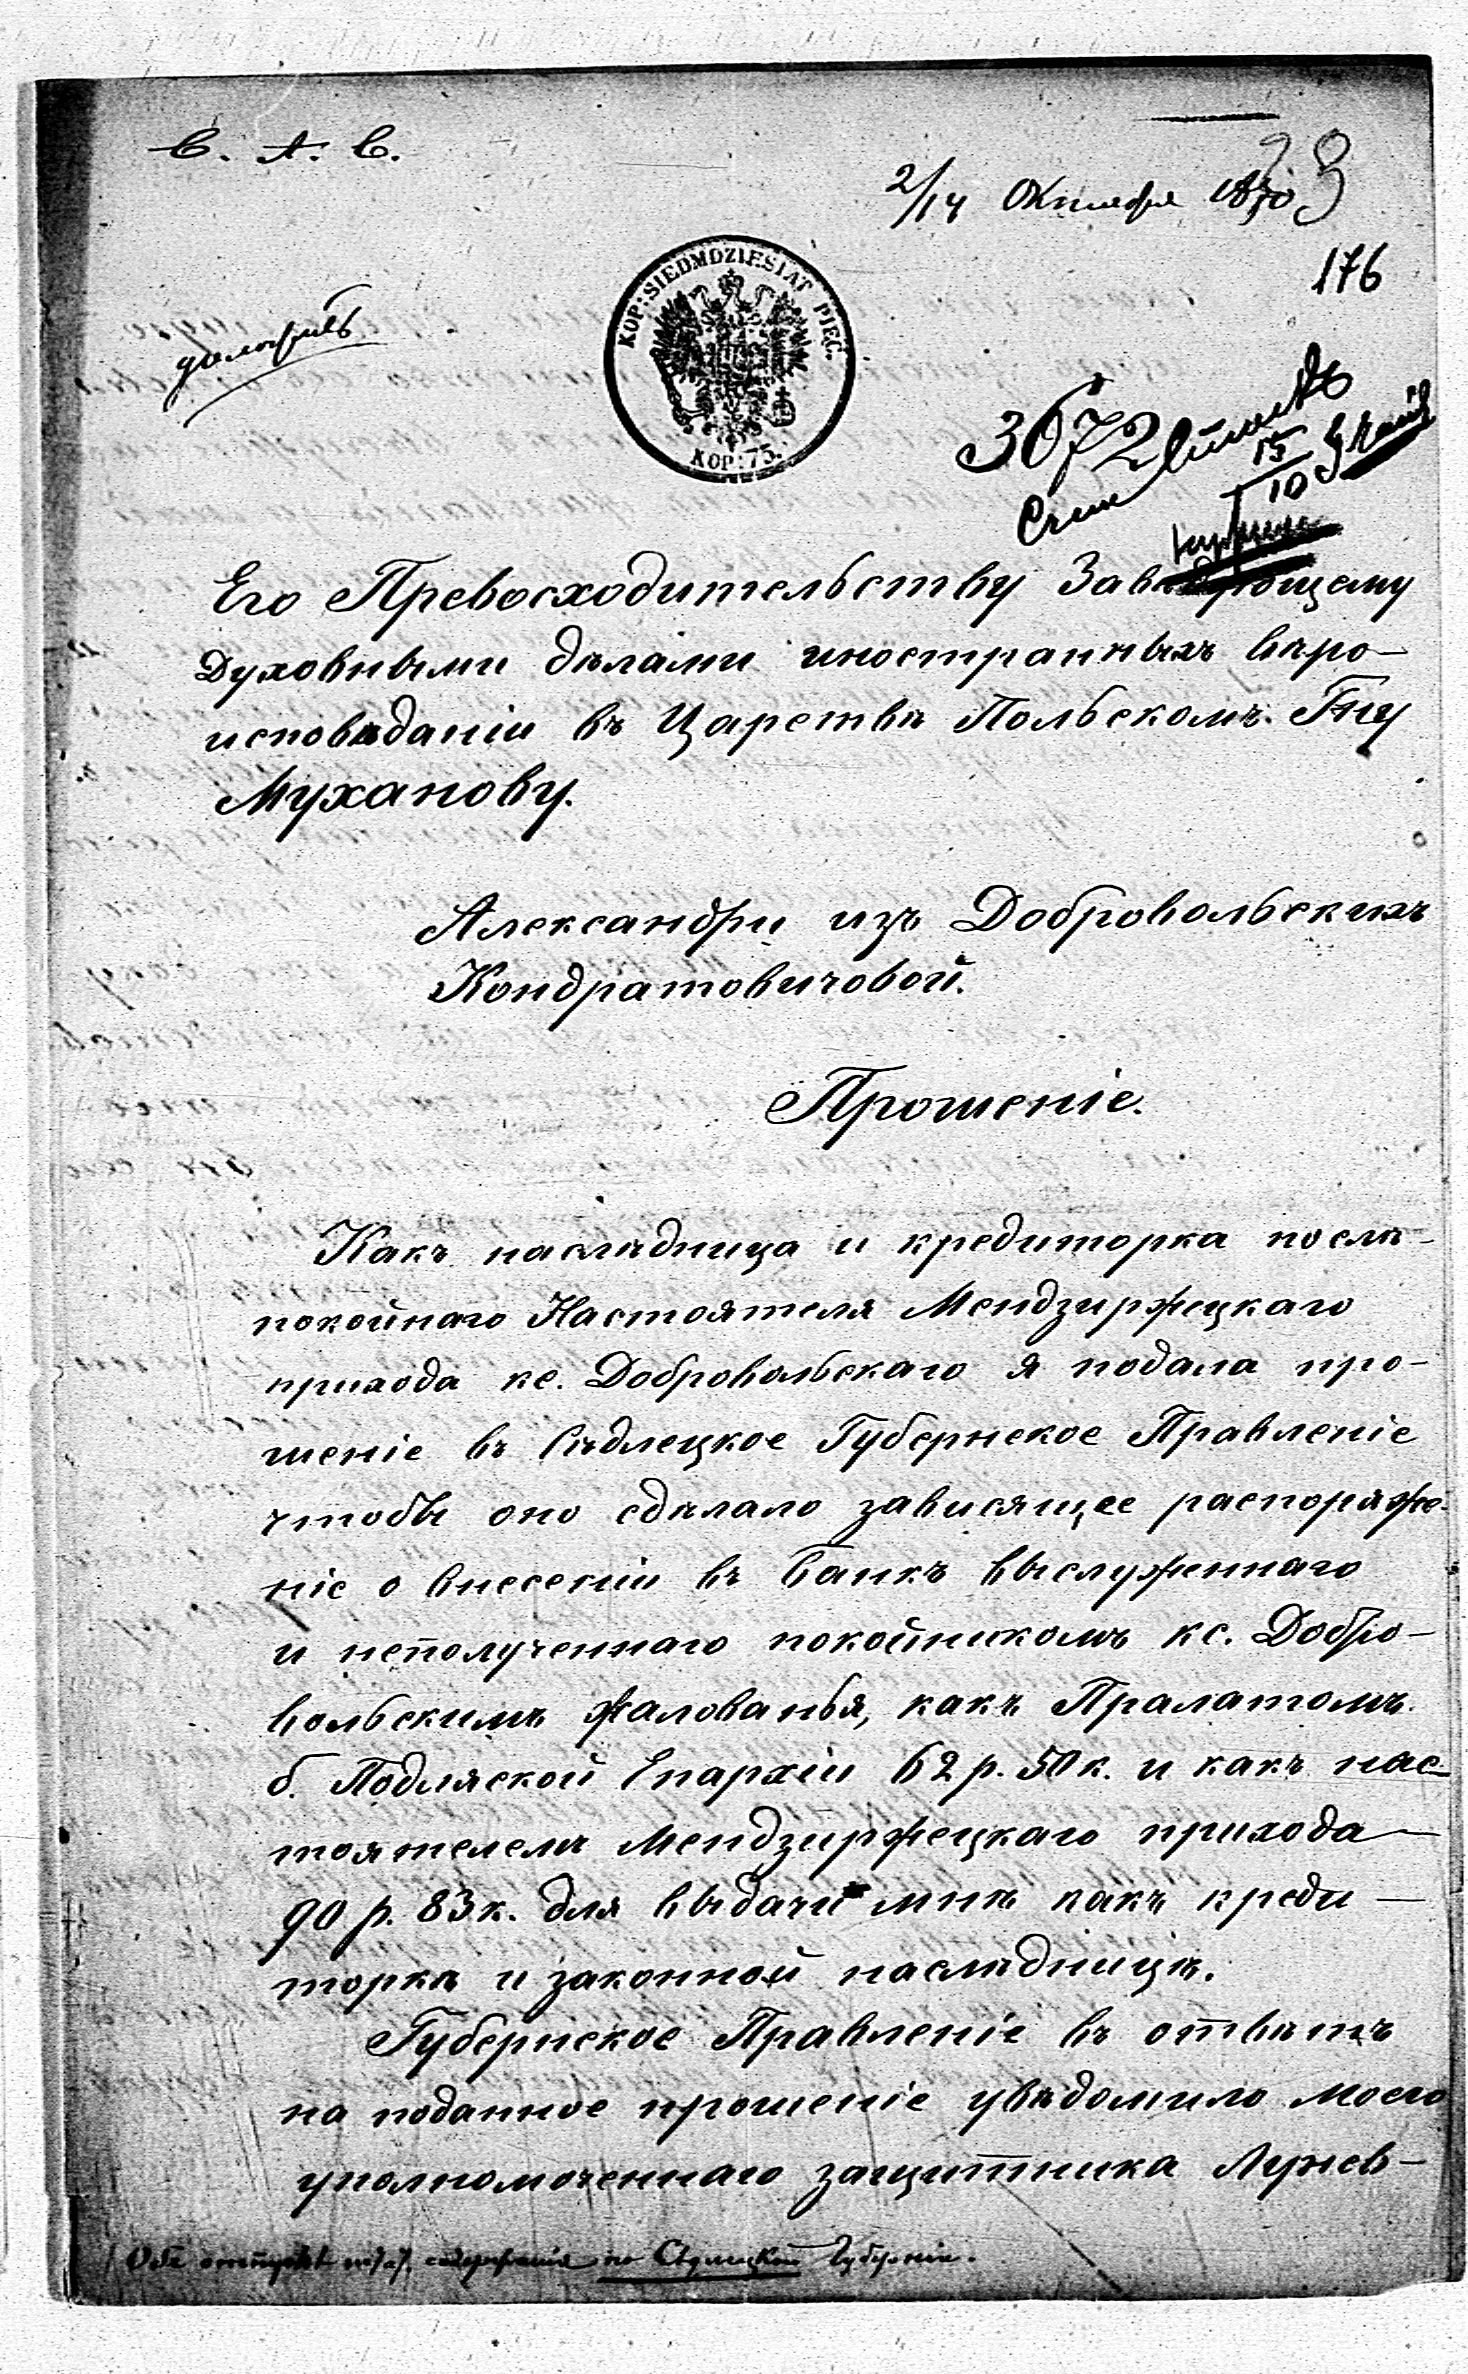 С. А. С.
2/14 Октября 1870
176
доложить
KOP: SIEDMDZIESIAT PIĘĆ.
KOP: 75.
3672
15/10
Его Превосходительству Заведующему
Духовными дѣлами иностранныхъ вѣро-
исповѣданіи въ Царствѣ Польскомъ Гну
Муханову.
Александры изъ Добровольскихъ
Кондратовичовой.
Прошеніе.
Какъ наслѣдница и кредиторка послѣ-
покойнаго Настоятеля Мендзиржецкаго
прихода кс. Добровольскаго я подала про-
шеніе въ Сѣдлецкое Губернское Правленіе
чтобы оно сдѣлало зависящее распоряже-
ніе о внесеніи въ Банкъ выслуженнаго
и неполученнаго покойникомъ кс. Добро-
вольскимъ жалованья, какъ Пралатомъ
б. Подляской Епархіи 62 р. 50 к. и какъ нас-
тоятелемъ Мендзиржецкаго прихода
90 р. 83 к. для выдачи мнѣ какъ креди-
торкѣ и законной наслѣдницѣ.
Губернское Правленіе въ отвѣтъ
на поданное прошеніе увѣдомило моего
уполномоченнаго защитника Лунев-
содержанія по Сѣдлецкой Губерніи.